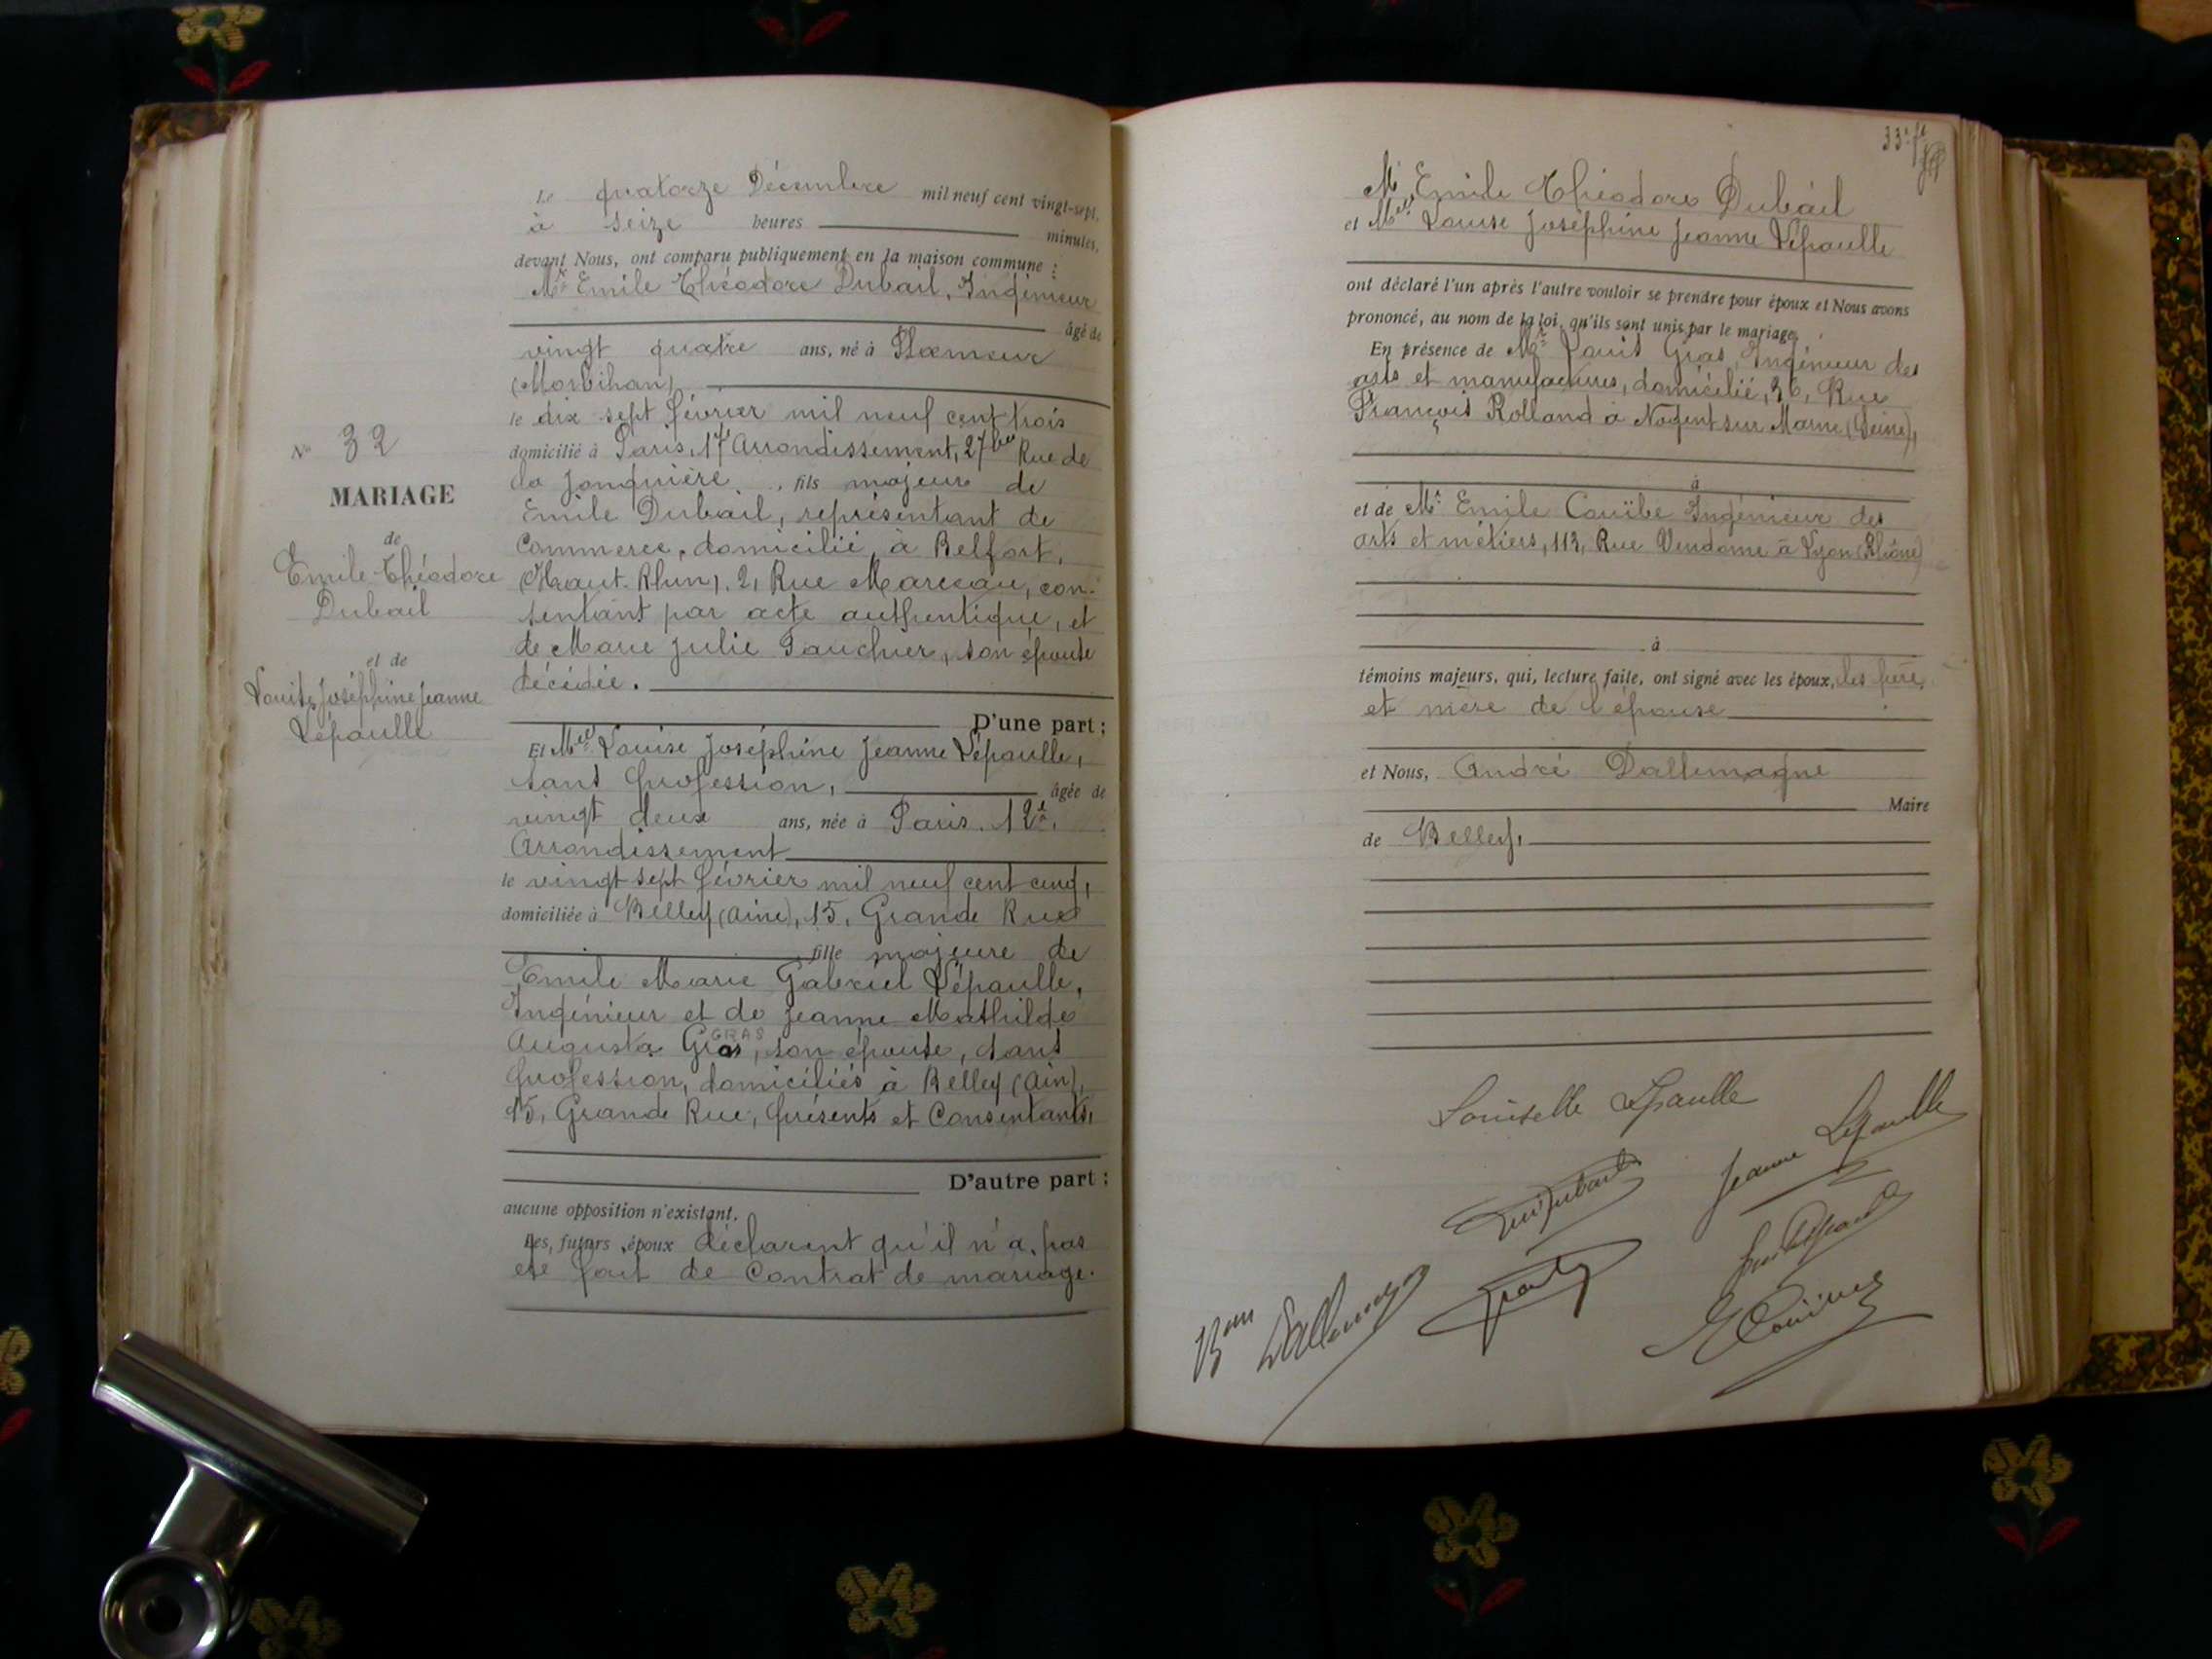 Le quatorze Décembre mil neuf cent vingt-sept,
à seize heures minutes,
devant Nous, ont comparu publiquement en la maison commune :
Mr Emile Théodore Dubail, Ingénieur
âgé de
vingt quatre ans, né à Ploemeur
(Morbihan)
le dix sept février mil neuf cent trois
domicilié à Paris, 17e Arrondissement, 27 bis Rue de
la Jonquière, fils majeur de
Emile Dubail, représentant de
Commerce, domicilié à Belfort,
(Haut-Rhin), 2, Rue Marceau, con-
sentant par acte authentique, et
de Marie Julie Gaucher, son épouse
décédée.
D'une part ;
Et Melle Louise Joséphine Jeanne Lépaulle,
sans profession, âgée de
vingt deux ans, née à Paris. 12e.
Arrondissement
le vingt sept février mil neuf cent cinq,
domiciliée à Belley (Ain), 15, Grande Rue
fille majeure de
Emile Marie Gabriel Lépaulle,
Ingénieur et de Jeanne Mathilde
GRAS
Augusta Gras, son épouse, sans
profession, domiciliés à Belley (Ain),
15, Grande Rue, présents et Consentants,
D'autre part ;
aucune opposition n'existant.
Les futurs époux déclarent qu'il n'a pas
été fait de Contrat de mariage.
No 32
MARIAGE
de
Emile-Théodore
Dubail
et de
Louise Joséphine Jeanne
Lépaulle
33
M Emile Théodore Dubail
et Melle Louise Joséphine Jeanne Lépaulle
ont déclaré l'un après l'autre vouloir se prendre pour époux et Nous avons
prononcé, au nom de la loi, qu'ils sont unis par le mariage.
En présence de Mr Louis Gras, Ingénieur des
arts et manufactures, domicilié, 36, Rue
François Rolland à Nogent sur Marne (Seine),
à
et de Mr Emile Couïbe Ingénieur des
arts et métiers, 113, Rue Vendome à Lyon (Rhône)
à
témoins majeurs, qui, lecture faite, ont signé avec les époux, les père
et mère de l'épouse
et Nous, André Dallemagne
Maire
de Belley,
Louiselle Lépaulle
Jeanne Lépaulle
Dubail